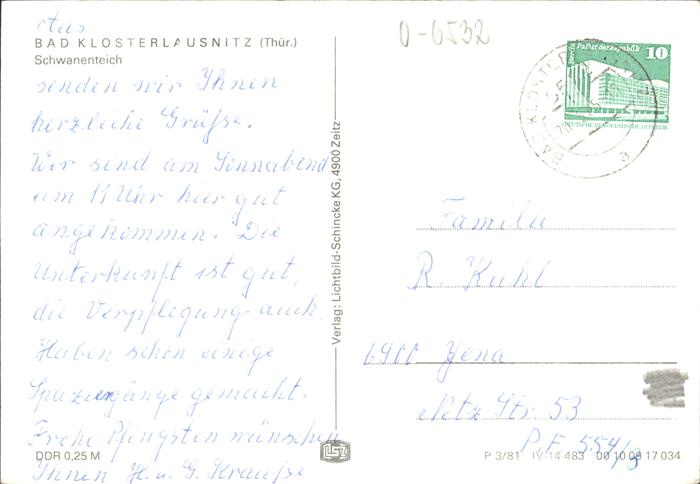 Aus
BAD KLOSTERLAUSNITZ (Thür.)
Schwanenteich
senden wir Ihnen
herzliche Grüße.
Wir sind am Sonnabend
um 11 Uhr hier gut
angekommen. Die
Unterkunft ist gut,
die Verpflegung auch.
Haben schon einige
Spaziergänge gemacht.
Frohe Pfingsten wünschen
Ihnen H. u. G. Krauße
DDR 0,25 M
Verlag: Lichtbild-Schincke KG, 4900 Zeitz
0-6532
Berlin Palast der Republik 10
DEUTSCHE DEMOKRATISCHE REPUBLIK
BAD KLOSTER
Familie
R. Kuhl
6900 Jena
Netz Str. 53
P.F. 554/9
P 3/81 IV-14-483 00 10 09 17 034